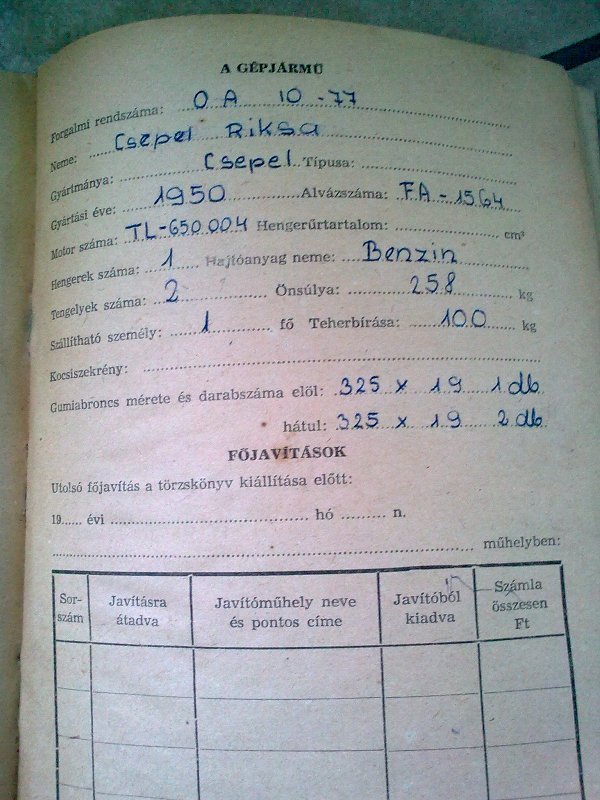 A GÉPJÁRMŰ
Forgalmi rendszáma: OA 10-77
Neme: Csepel Riksa
Gyártmánya: Csepel Típusa:
Gyártási éve: 1950 Alvázszáma: FA-1564
Motor száma: TL-650004 Hengerűrtartalom: cm³
Hengerek száma: 1 Hajtóanyag neme: Benzin
Tengelyek száma: 2 Önsúlya: 258 kg
Szállítható személy: 1 fő Teherbírása: 100 kg
Kocsiszekrény:
Gumiabroncs mérete és darabszáma elöl: 325 x 19 1 db
hátul: 325 x 19 2 db
FŐJAVÍTÁSOK
Utolsó főjavítás a törzskönyv kiállítása előtt:
19...... évi ........ hó ........ n.
műhelyben:
Sor-szám Javításra átadva Javítóműhely neve és pontos címe Javítóból kiadva Számla összesen Ft